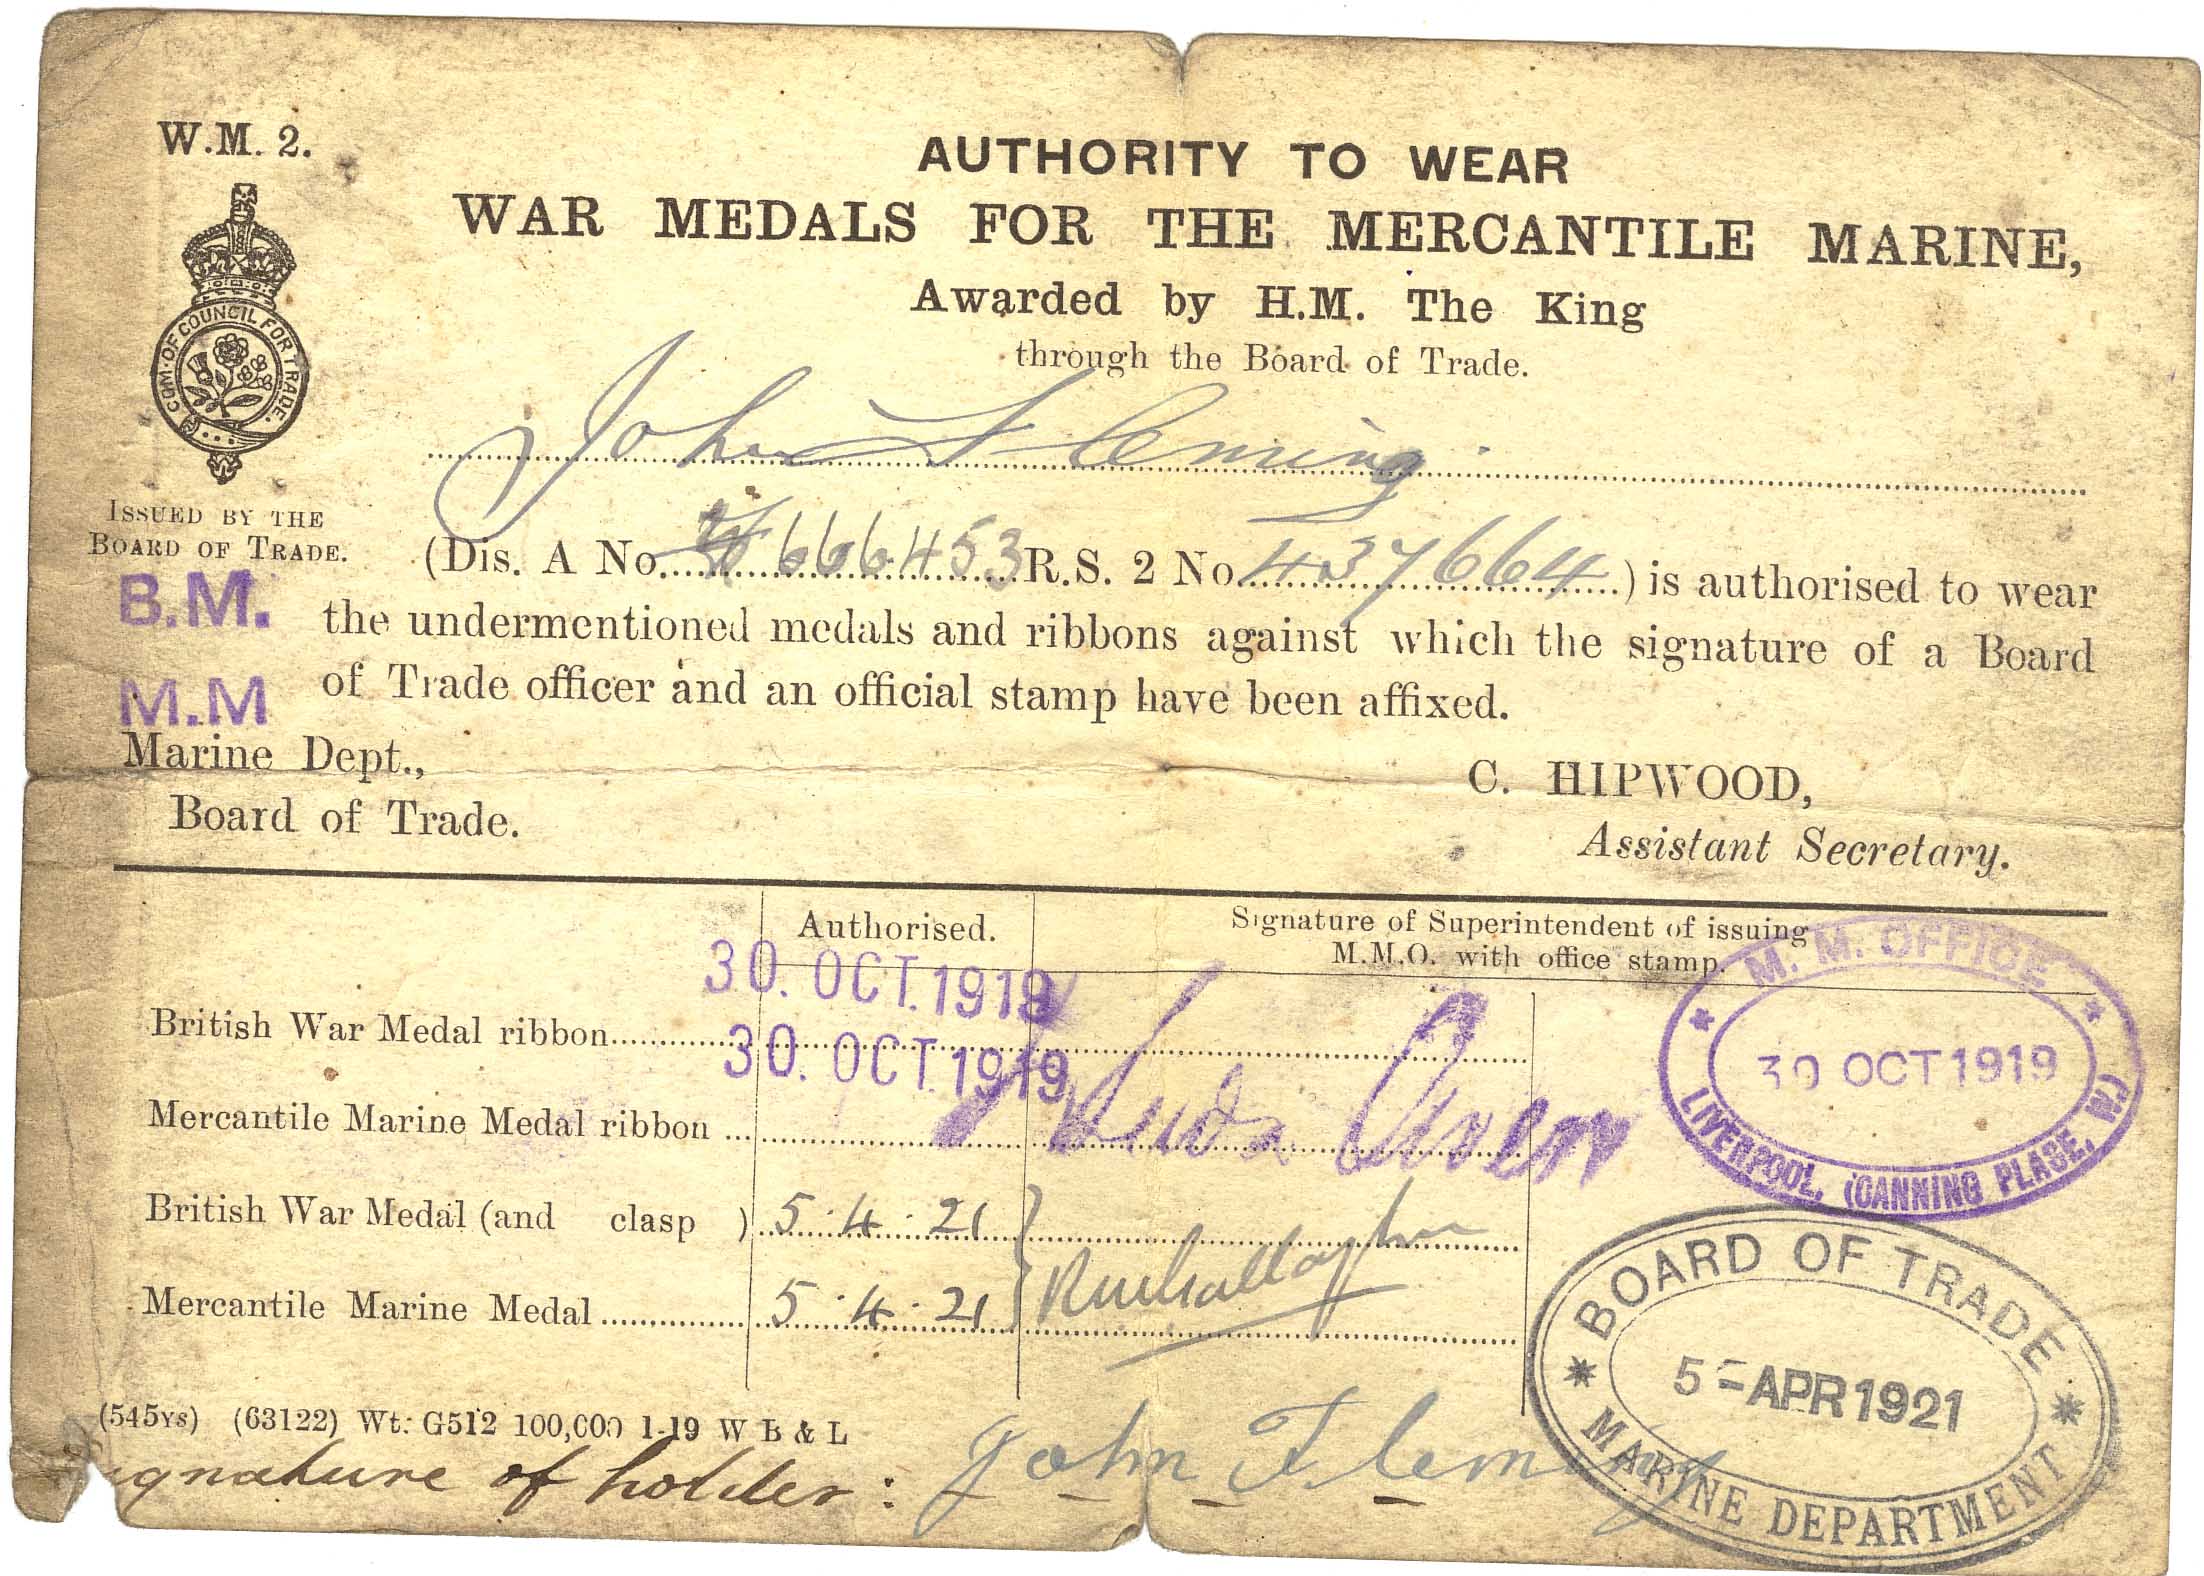 W.M. 2.
AUTHORITY TO WEAR
WAR MEDALS FOR THE MERCANTILE MARINE,
Awarded by H.M. The King
through the Board of Trade.
COM. OF COUNCIL FOR TRADE.
John Fleming
ISSUED BY THE
BOARD OF TRADE.
(Dis. A No. 666453 R.S. 2 No. 437664) is authorised to wear
B.M.
the undermentioned medals and ribbons against which the signature of a Board
M.M
of Trade officer and an official stamp have been affixed.
Marine Dept.,
Board of Trade.
C. HIPWOOD,
Assistant Secretary.
Authorised.
Signature of Superintendent of issuing
M.M.O. with office stamp.
British War Medal ribbon 30. OCT. 1919
Mercantile Marine Medal ribbon 30. OCT. 1919
M. M. OFFICE
30 OCT 1919
LIVERPOOL, (CANNING PLASE, W.)
British War Medal (and clasp ) 5.4.21
Mercantile Marine Medal 5.4.21
BOARD OF TRADE
5 - APR 1921
MARINE DEPARTMENT
(545YS) (63122) Wt: G512 100,000 1-19 W B & L
Signature of holder: John Fleming